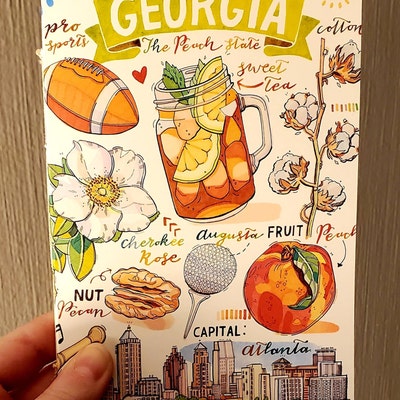 GEORGIA
The Peach State
pro
sports
cotton
sweet
tea
Cherokee
Rose
Augusta
FRUIT
Peach
NUT
Pecan
CAPITAL:
Atlanta